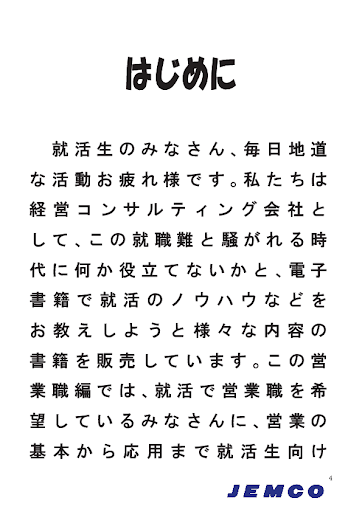 はじめに
就活生のみなさん、毎日地道
な活動お疲れ様です。私たちは
経営コンサルティング会社と
して、この就職難と騒がれる時
代に何か役立てないかと、電子
書籍で就活のノウハウなどを
お教えしようと様々な内容の
書籍を販売しています。この営
業職編では、就活で営業職を希
望しているみなさんに、営業の
基本から応用まで就活生向け
4
JEMCO